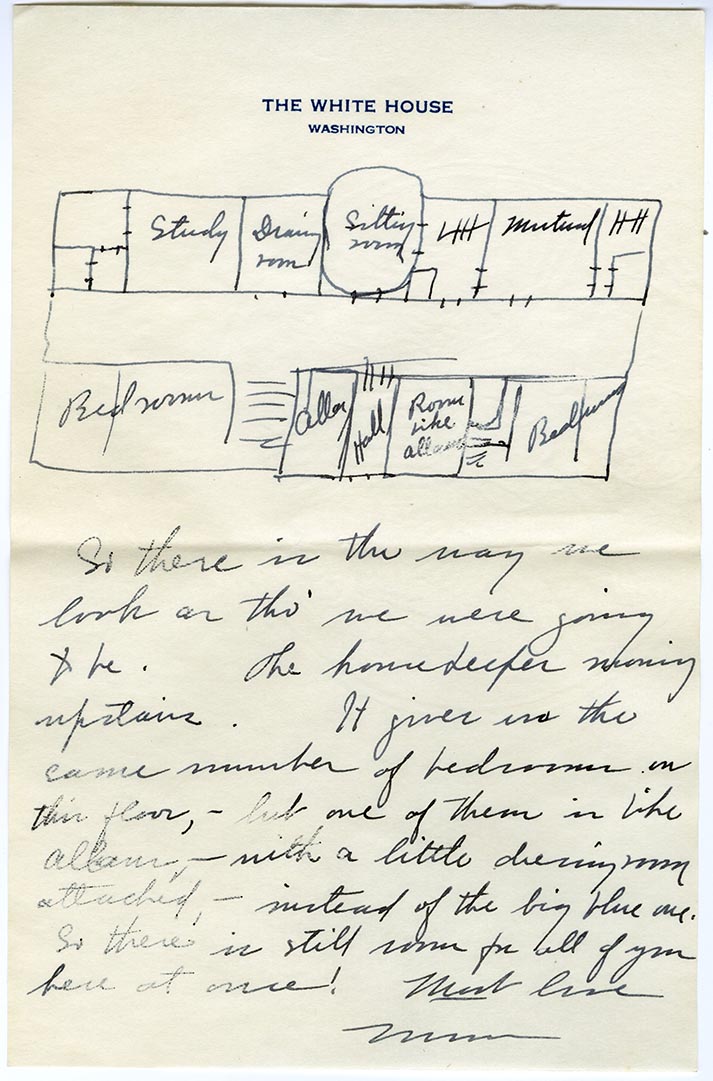 THE WHITE HOUSE
WASHINGTON
Study
room
Sitting
room
LHH
Mutual
HH
Bedrooms
Allan
HH
Hall
Room
like
Allan's
Bedrooms
So there is the way we
look as tho' we were going
to be. The housekeeper moving
upstairs. It gives us the
same number of bedrooms on
this floor, - but one of them is like
Allan's, - with a little dressing room
attached, - instead of the big blue one.
So there is still room for all of you
here at once! Most love